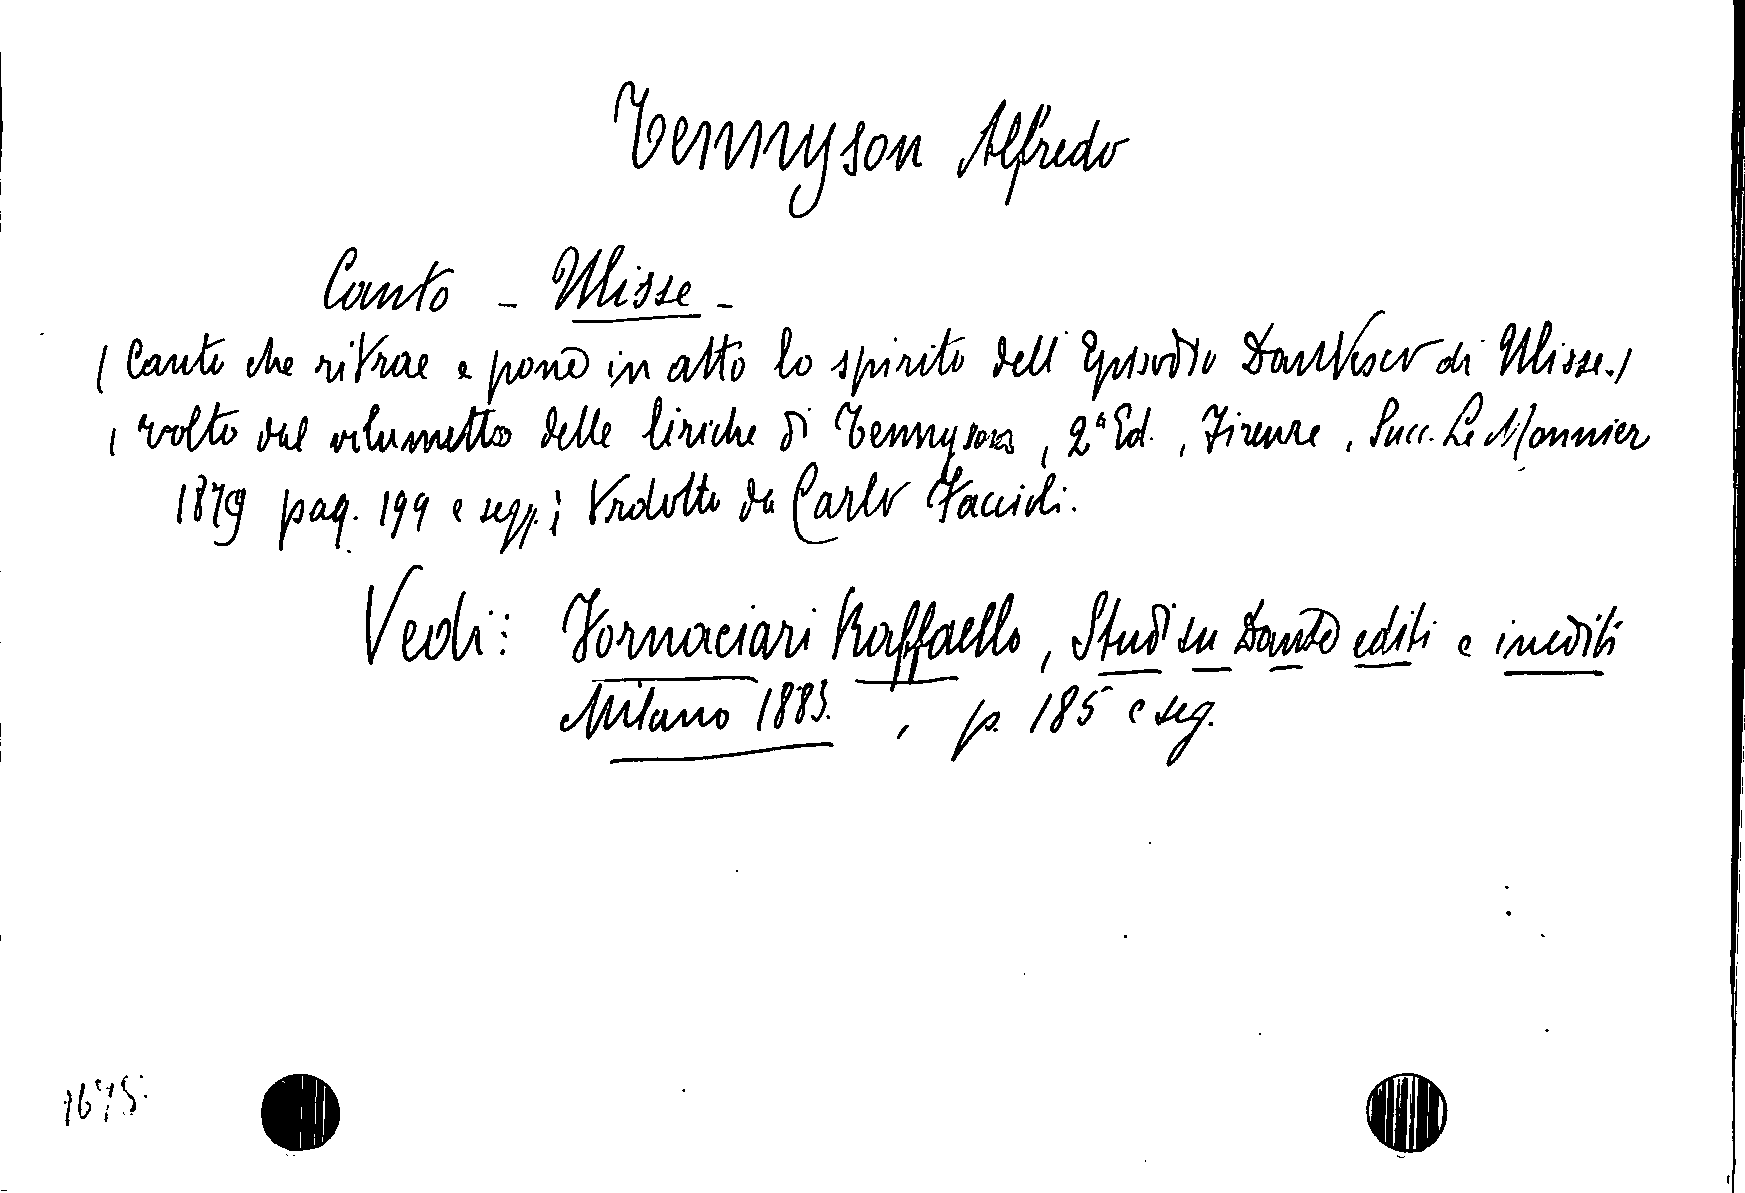 Tennyson Alfredo
Canto - Ulisse -
(Canto che ritrae e pone in atto lo spirito dell'Episodio Dantesco di Ulisse.)
, volto dal volumetto delle liriche di Tennyson, 2ª Ed., Firenze, Succ. Le Monnier
1879 pag. 199 e segg.; tradotto da Carlo Faccioli.
Vedi: Fornaciari Raffaello, Studi su Dante editi e inediti
Milano 1883. , p. 185 e seg.